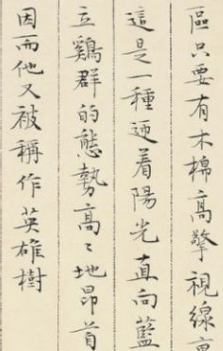 區只要有木棉高擎視線
這是一種迎着陽光直向藍
立鷄群的態勢高高地昂首
因而他又被稱作英雄樹